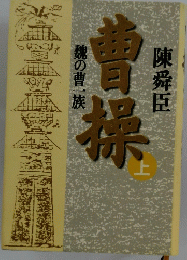 陳舜臣
曹操
上
魏の曹一族